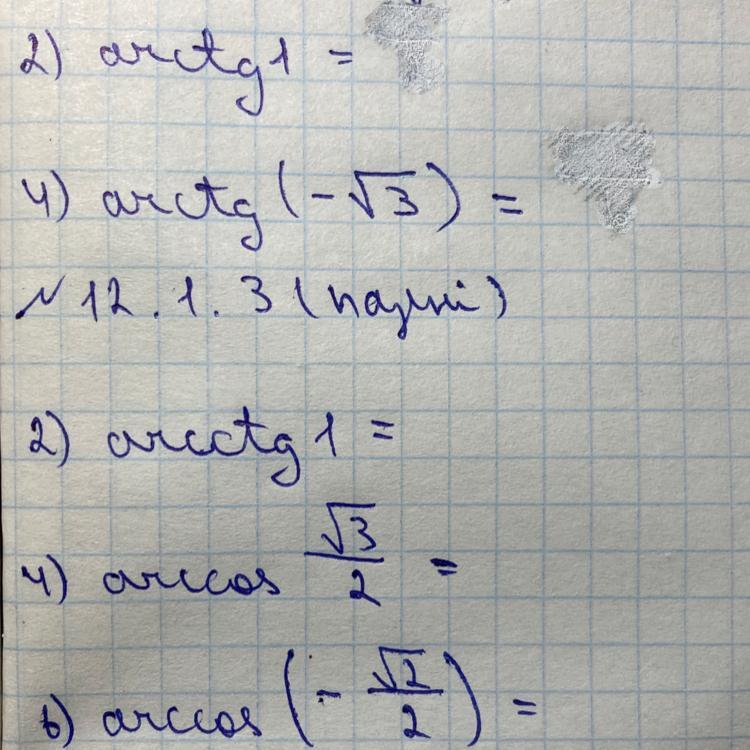 2) arctg 1 =
4) arctg (-√3) =
№ 12.1.3 (парні)
2) arcctg 1 =
4) arccos √3/2 =
6) arccos (-√2/2) =